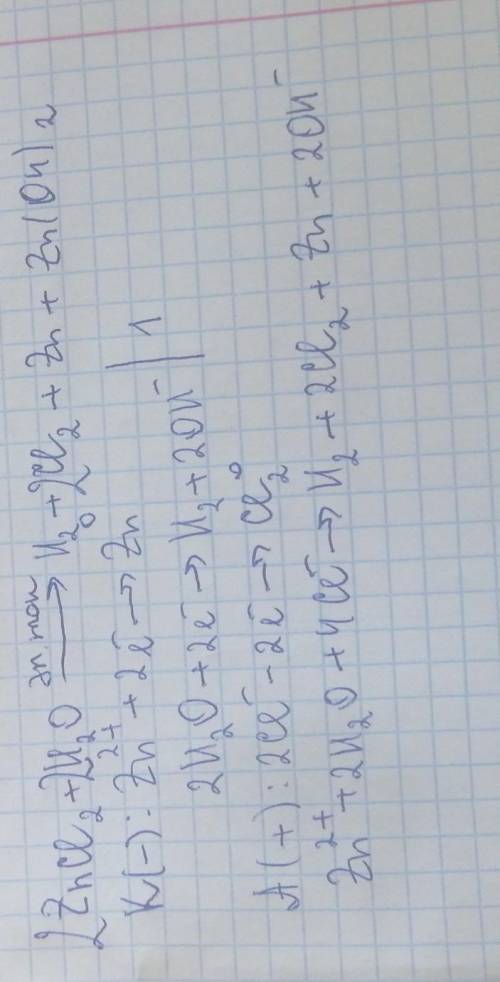 2ZnCl₂ + 2H₂O эл. ток → H₂ + 2Cl₂ + Zn + Zn(OH)₂
K(-): Zn²⁺ + 2e⁻ → Zn⁰ | 1
2H₂O + 2e⁻ → H₂ + 2OH⁻
A(+): 2Cl⁻ - 2e⁻ → Cl₂⁰
Zn²⁺ + 2H₂O + 4Cl⁻ → H₂ + 2Cl₂ + Zn + 2OH⁻